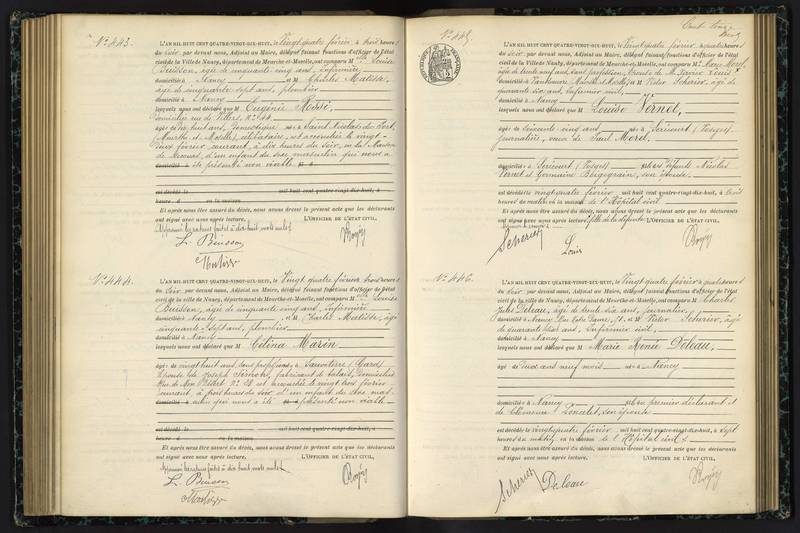 N° 443.
L'AN MIL HUIT CENT QUATRE-VINGT-DIX-HUIT, le Vingt quatre février, à trois heures
du Soir par devant nous, Adjoint au Maire, délégué faisant fonctions d'officier de l'état
civil de la Ville de Nancy, département de Meurthe-et-Moselle, ont comparu M elle Louise
Buisson, âgée de cinquante cinq ans, Infirmière
domiciliée à Nancy et M Charles Matisse,
âgé de cinquante sept ans, plombier
domicilié à Nancy
lesquels nous ont déclaré que M Eugénie Rossé,
Domiciliée rue de Villers, N° 44
âgée de dix huit ans, Domestique née à Saint Nicolas du Port,
Meurthe et Moselle, célibataire, est accouchée le vingt-
deux février courant, à dix heures du soir, en la Maison
de Secours, d'un enfant du sexe masculin qui nous a
domicilié à été présenté non viable
est décédé le mil huit cent quatre-vingt-dix-huit, à
heure d en la maison
Et après nous être assuré du décès, nous avons dressé le présent acte que les déclarants
ont signé avec nous après lecture. L'OFFICIER DE L'ÉTAT CIVIL,
L. Buisson
Matisse
N° 444.
L'AN MIL HUIT CENT QUATRE-VINGT-DIX-HUIT, le Vingt quatre février à trois heures
du Soir par devant nous, Adjoint au Maire, délégué faisant fonctions d'officier de l'état
civil de la ville de Nancy, département de Meurthe-et-Moselle, ont comparu M elle Louise
Buisson, âgée de cinquante cinq ans, infirmière
domiciliée à Nancy et M Charles Matisse, âgé
cinquante sept ans, plombier
domicilié à Nancy
lesquels nous ont déclaré que M Célina Marin
âgée de vingt huit ans, sans profession, née à Sauveterre (Gard)
Epouse de Joseph fabricant de balais, domiciliés
Rue de Mon Désert N° 28 est accouchée le vingt trois février
courant, à trois heures du soir d'un enfant du sexe mas-
domicilié à culin qui nous a été présenté non viable
est décédé le mil huit cent quatre-vingt-dix-huit, à
heure d en la maison
Et après nous être assuré du décès, nous avons dressé le présent acte que les déclarants
ont signé avec nous après lecture. L'OFFICIER DE L'ÉTAT CIVIL,
L. Buisson
Matisse
N° 445.
L'AN MIL HUIT CENT QUATRE-VINGT-DIX-HUIT, le Vingt quatre février à quatre heures
du Soir par devant nous, Adjoint au Maire, délégué faisant fonctions d'officier de l'état
civil de la Ville de Nancy, département de Meurthe-et-Moselle, ont comparu M Marie Morel,
âgée de trente neuf ans, sans profession, épouse de M. Xavier Louis
domiciliée à Vandoeuvre (Meurthe et Moselle) et M Victor Scherier, âgé de
quarante six ans, Infirmier civil,
domicilié à Nancy
lesquels nous ont déclaré que M Louise Vernet,
âgée de Soixante cinq ans née à Sericourt (Vosges)
Journalière, veuve de Paul Morel.
domiciliée à Sericourt (Vosges) fille des défunts Nicolas
Vernet et Germaine son épouse
est décédée le vingt quatre février mil huit cent quatre-vingt-dix-huit, à trois
heures du matin en la maison de l'Hôpital civil
Et après nous être assuré du décès, nous avons dressé le présent acte que les déclarants
ont signé avec nous après lecture, fille de la défunte L'OFFICIER DE L'ÉTAT CIVIL,
Scherier
Louis
N° 446.
L'AN MIL HUIT CENT QUATRE-VINGT-DIX-HUIT, le Vingt quatre février à quatre heures
du Soir par devant nous, Adjoint au Maire, délégué faisant fonctions d'officier de l'état
civil de la ville de Nancy, département de Meurthe-et-Moselle, ont comparu M Charles
Jules Deleau, âgé de trente six ans, journalier
domicilié à Nancy, Rue Notre Dame, et M Victor Scherier, âgé
de quarante six ans, Infirmier civil,
domicilié à Nancy
lesquels nous ont déclaré que M Marie Renée Deleau,
âgée de Deux ans neuf mois née à Nancy
domiciliée à Nancy fille du premier déclarant et
de Clémence Poncelet, son épouse
est décédée le vingt quatre février mil huit cent quatre-vingt-dix-huit, à sept
heures du matin, en la maison de l'Hôpital civil
Et après nous être assuré du décès, nous avons dressé le présent acte que les déclarants
ont signé avec nous après lecture. L'OFFICIER DE L'ÉTAT CIVIL,
Scherier
Deleau